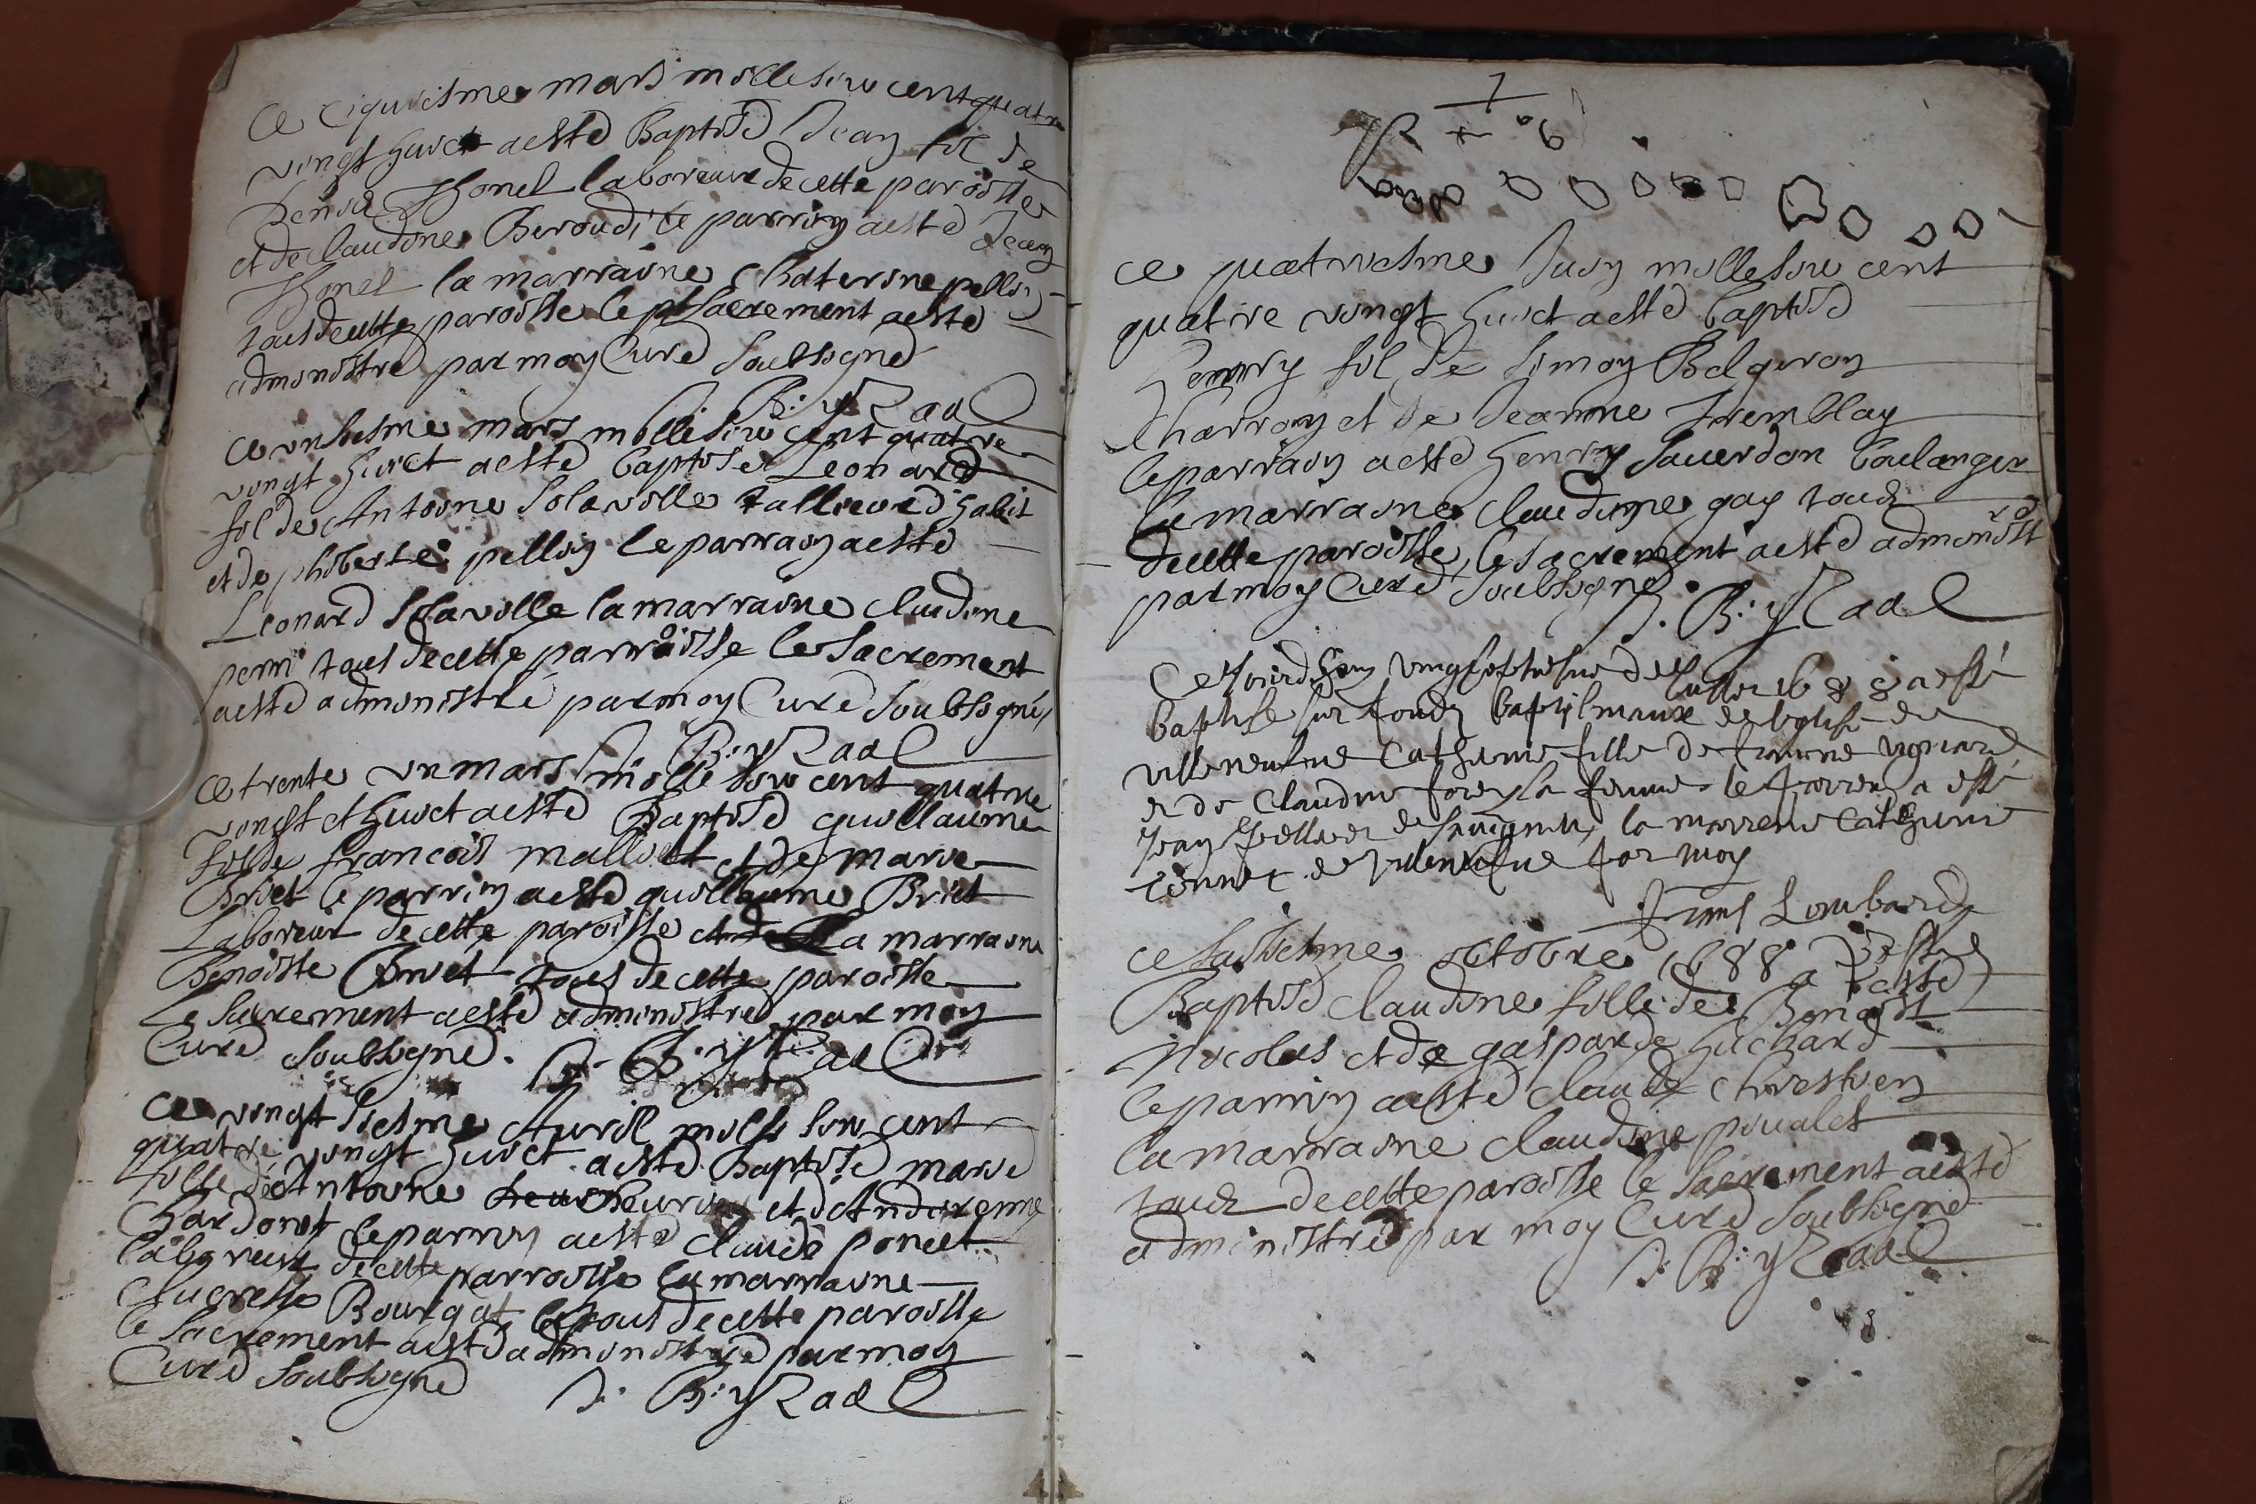 Ce ciquiesme mars mille six cent quatre
vingt huict a esté Baptisé Jean fil de
Benoit Thonel laboreur de cette paroisse
et de claudine Beroud le parrin a esté Jean
Thonel la marraine Chaterine pellin
tous de cette paroisse le pnt sacrement a esté
administré par moy Curé soubsigné
ce unsiesme mars mille six cent quatre
vingt huict a esté baptisé Leonard
fil de Antoine Solaville tallieur d'habit
et de philiberte pellin le parrain a esté
Leonard Solaville la marraine claudine
perrin tous de cette parroisse le Sacrement
a esté administré par moy Curé soubsigné
ce trente un mars mille six cent quatre
vingt et huict a esté Baptisé guillaume
fils de francois malliet et de marie
Briet le parrin a esté guillaume Briet
Laboreur de cette paroisse et de La marraine
Benoiste Briet tous de cette paroisse
Le sacrement a esté administré par moy
Curé soubsigné.
ce vingt siesme Auril mille six cent
quatre vingt huict a esté Baptisé marie
fille de Antoine et d'Andrienne
Chardonet le parrin a esté claude poncet
laboreur de cette parroisse la marraine
Bourgat tous de cette paroisse
le sacrement a esté administré par moy
Curé soubsigné
ce quatriesme Juin mille six cent
quattre vingt huict a esté baptisé
henry fil de simon Balgiron
Charron et de Jeanne Tremblay
le parrain a esté henry sauerdon boulanger
la marraine claudine gay tous
de cette paroisse, le sacrement a esté administ
ré
par moy Curé soubsigné
Ce Jourdhuy vingt septiesme de Juillet 1688 a esté
Baptisé sur fonds baptismaux de leglise de
villeneufue Catherine fille de
et de Claudine sa femme le parrin a esté
Jean de la marrene Catherine
de villeneufue par moy
Lombard
ce octobre 1688 a esté
Baptisé claudine fille de Benoist
nicolas et de gasparde huchard
le parrin a esté claude chrestien
la marraine claudine
tous de cette paroisse le sacrement a esté
administré par moy Curé soubsigné